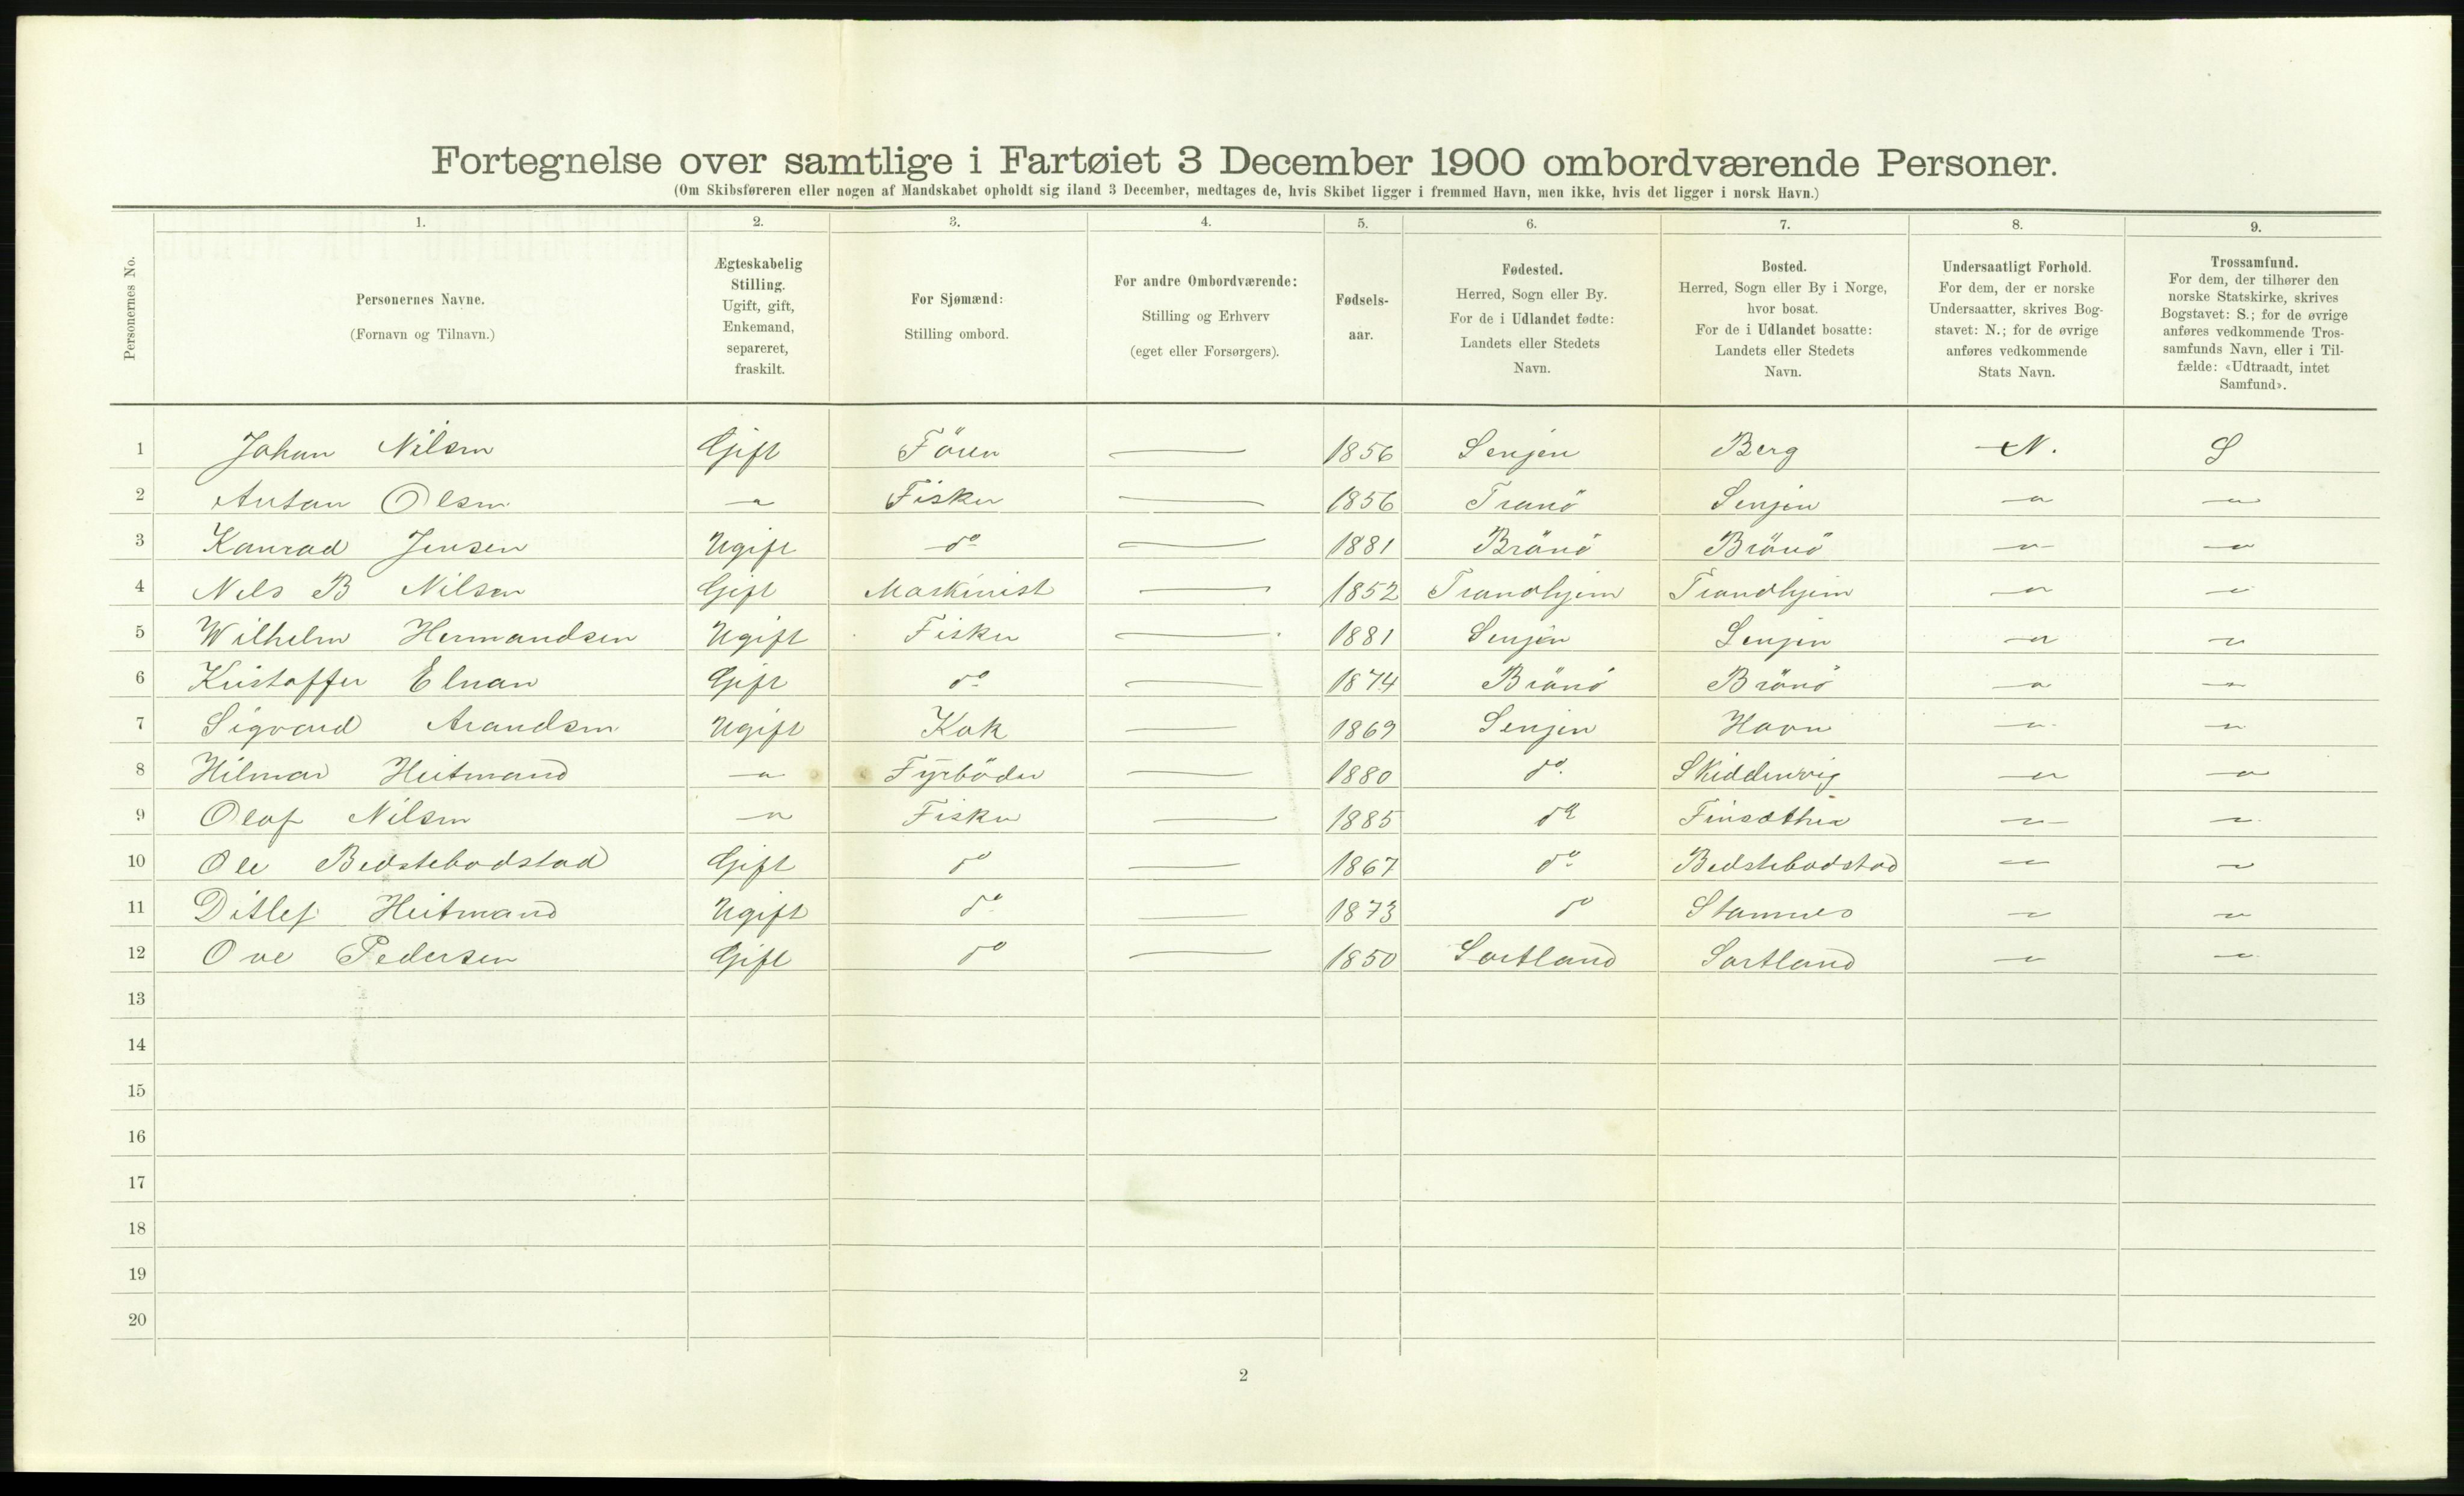 Fortegnelse over samtlige i Fartøiet 3 December 1900 ombordværende Personer.
(Om Skibsføreren eller nogen af Mandskabet opholdt sig iland 3 December, medtages de, hvis Skibet ligger i fremmed Havn, men ikke, hvis det ligger i norsk Havn.)
Personernes No.
1.
Personernes Navne.
(Fornavn og Tilnavn.)
2.
Ægteskabelig
Stilling.
Ugift, gift,
Enkemand,
separeret,
fraskilt.
3.
For Sjømænd:
Stilling ombord.
4.
For andre Ombordværende:
Stilling og Erhverv
(eget eller Forsørgers).
5.
Fødsels-
aar.
6.
Fødested.
Herred, Sogn eller By.
For de i Udlandet fødte:
Landets eller Stedets
Navn.
7.
Bosted.
Herred, Sogn eller By i Norge,
hvor bosat.
For de i Udlandet bosatte:
Landets eller Stedets
Navn.
8.
Undersaatligt Forhold.
For dem, der er norske
Undersaatter, skrives Bog-
stavet: N.; for de øvrige
anføres vedkommende
Stats Navn.
9.
Trossamfund.
For dem, der tilhører den
norske Statskirke, skrives
Bogstavet: S.; for de øvrige
anføres vedkommende Tros-
samfunds Navn, eller i Til-
fælde: «Udtraadt, intet
Samfund».
1 Johan Nilsen Gift Fören — 1856 Senjen Berg N. S
2 Anton Olsen " Fisker — 1856 Tranö Senjen " "
3 Konrad Jensen Ugift do — 1881 Brönö Brönö " "
4 Nels B Nilsen Gift Maskinist — 1852 Trondhjem Trondhjem " "
5 Wilhelm Hermandsen Ugift Fisker — 1881 Senjen Senjen " "
6 Kristoffer Elnan Gift do — 1874 Brönö Brönö " "
7 Sigvard Arandsen Ugift Kok — 1869 Senjen Havn " "
8 Hilmar Heitmand " Fyrböder — 1880 do. Skiddenvig " "
9 Olaf Nilsen " Fisker — 1885 do " "
10 Ole Bedstebodstad Gift do — 1867 do Bedstebodstad " "
11 Ditlef Heitmand Ugift do — 1873 do Stamnes " "
12 Ove Pedersen Gift do — 1850 Sortland Sortland " "
13
14
15
16
17
18
19
20
2